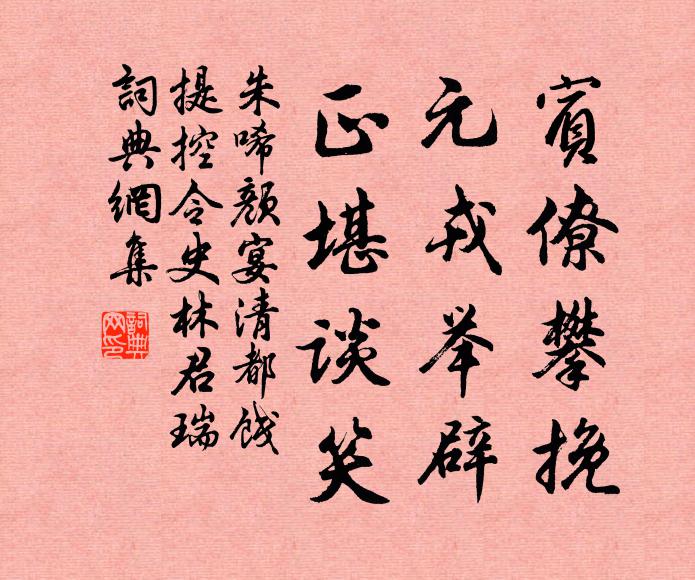 賓僚攀挽
元戎举辟
正堪谈笑
朱唏颜宴清都餞
提控令史林君瑞
詞典網集
詞典
网印